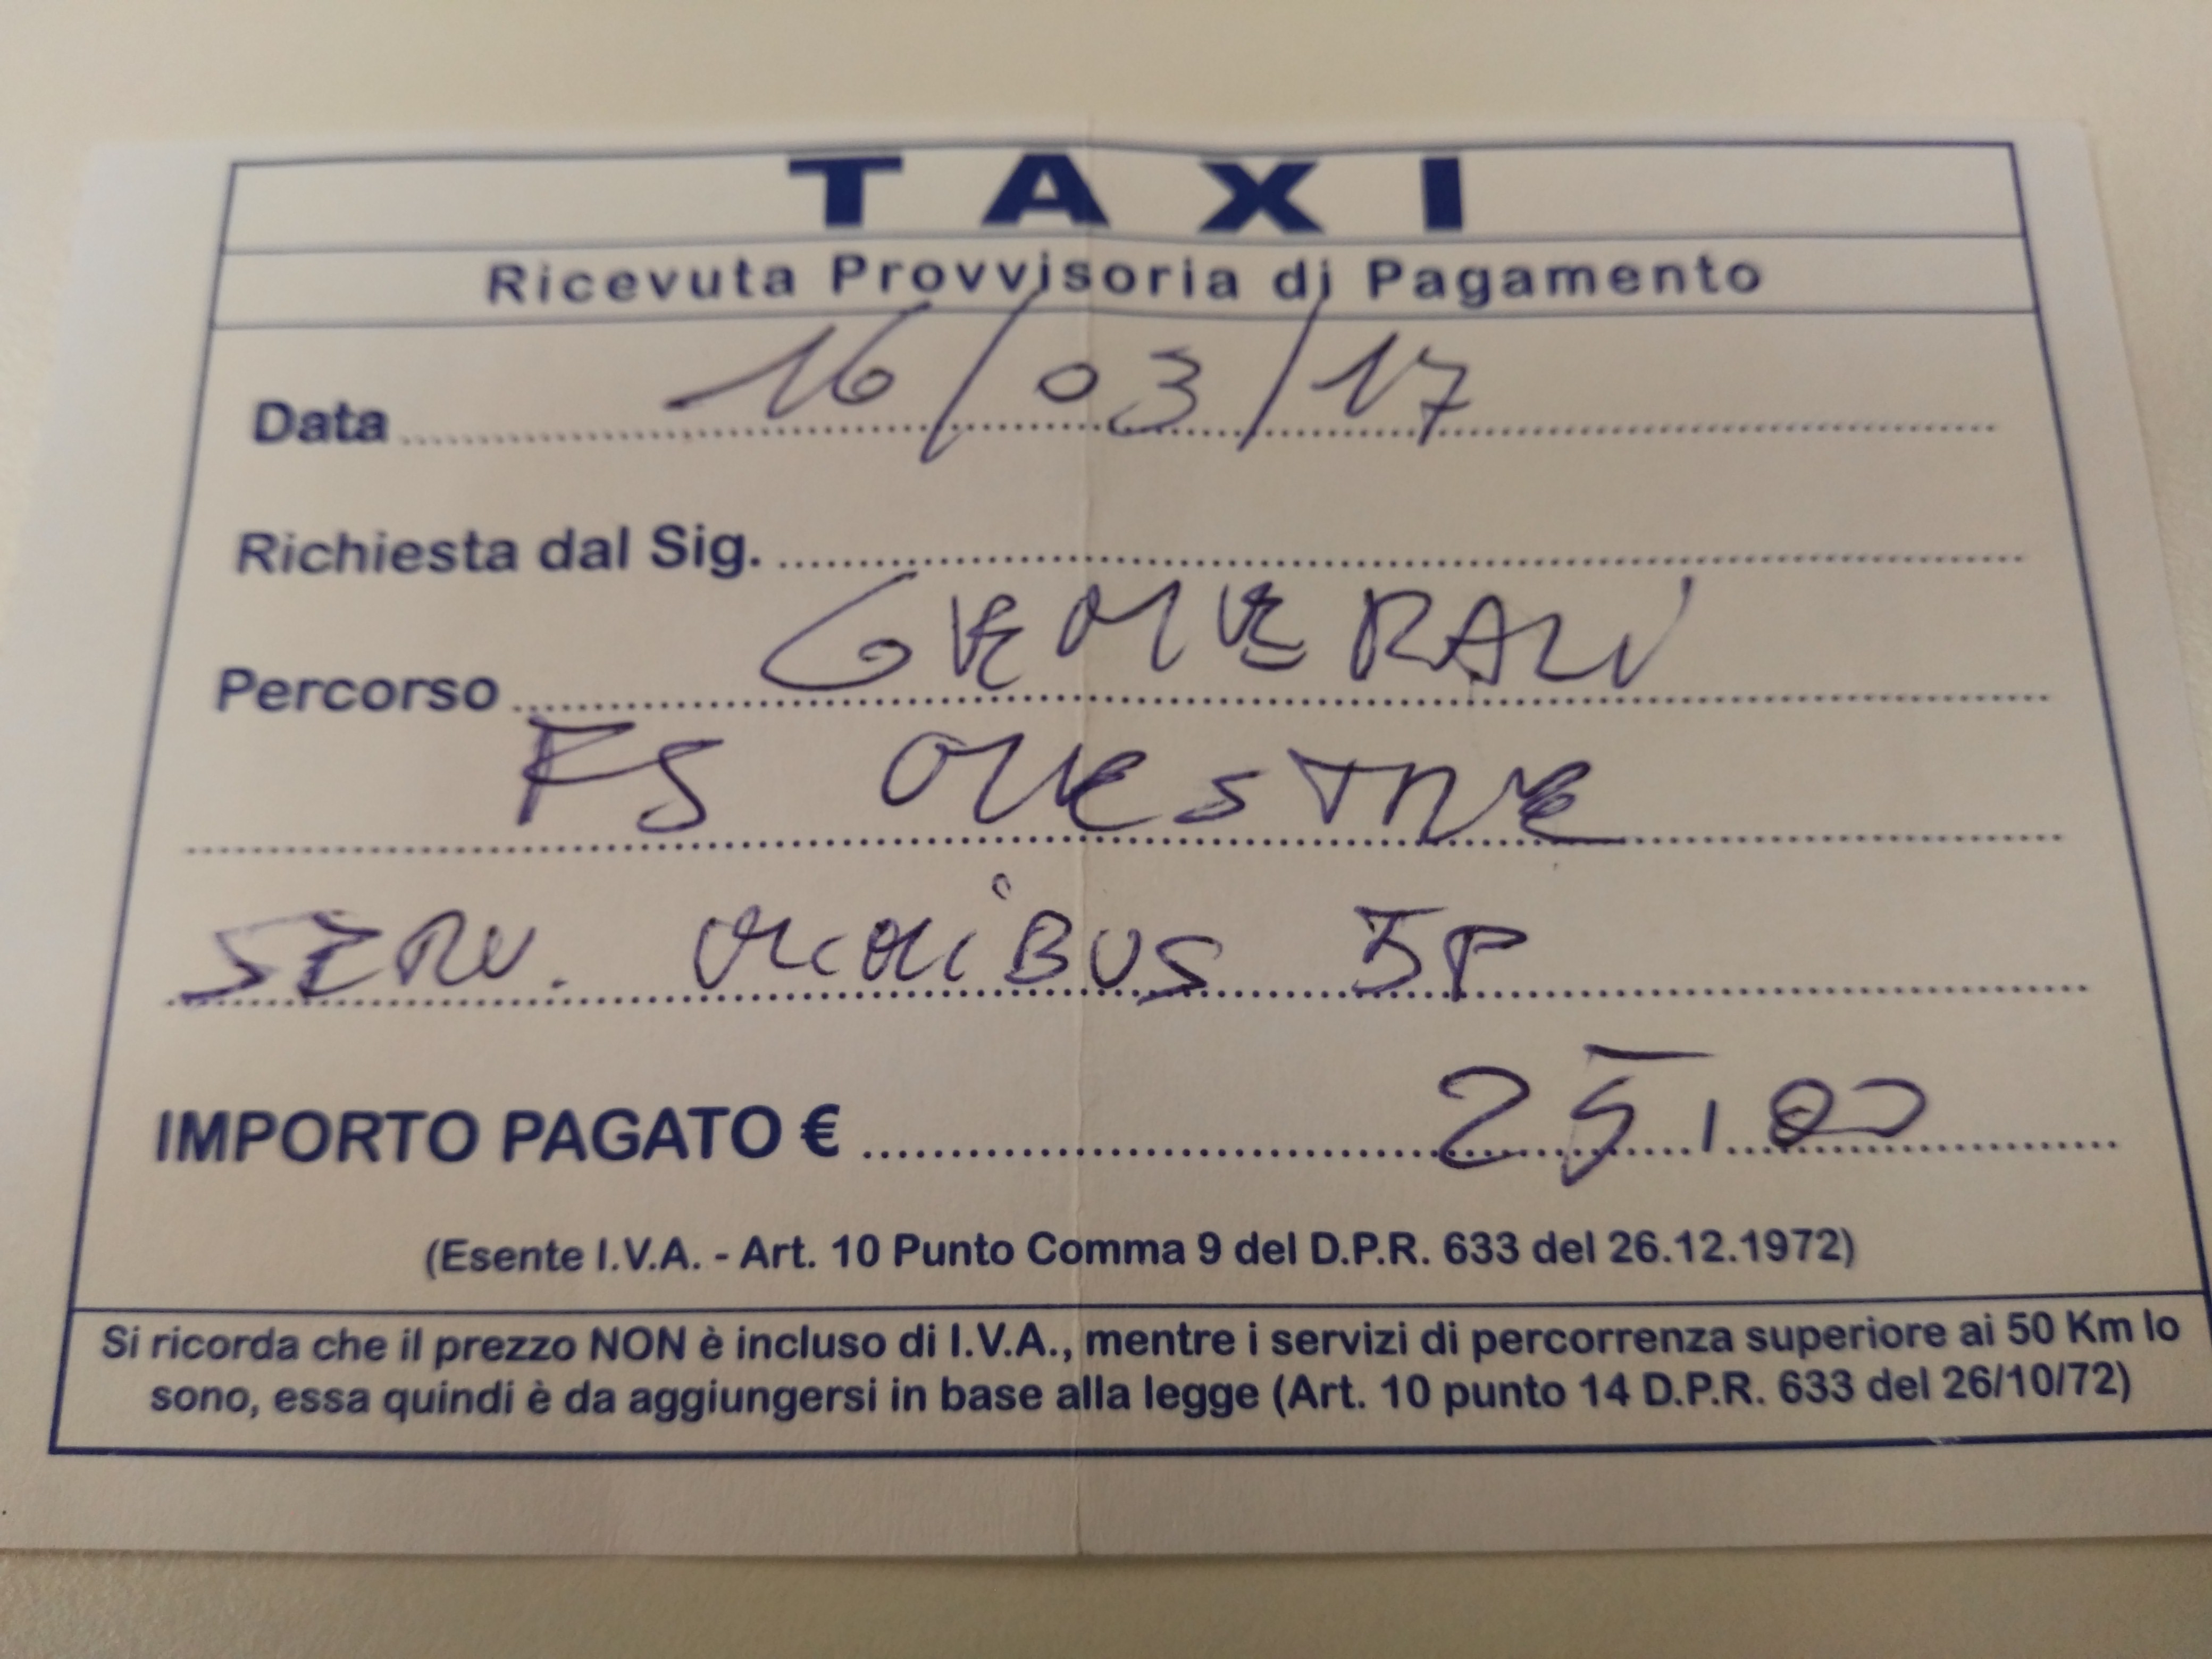 TAXI
Ricevuta Provvisoria di Pagamento
Data 16/03/17
Richiesta dal Sig.
Percorso GENERALI
FS MESTRE
SERV. MINIBUS 5P
IMPORTO PAGATO € 25,00
(Esente I.V.A. - Art. 10 Punto Comma 9 del D.P.R. 633 del 26.12.1972)
Si ricorda che il prezzo NON è incluso di I.V.A., mentre i servizi di percorrenza superiore ai 50 Km lo
sono, essa quindi è da aggiungersi in base alla legge (Art. 10 punto 14 D.P.R. 633 del 26/10/72)